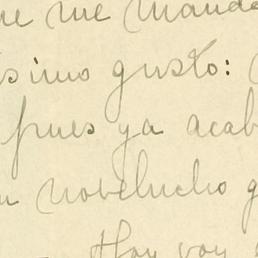 me mande
simo gusto:
pues ya acab
novelucho g
Hoy voy